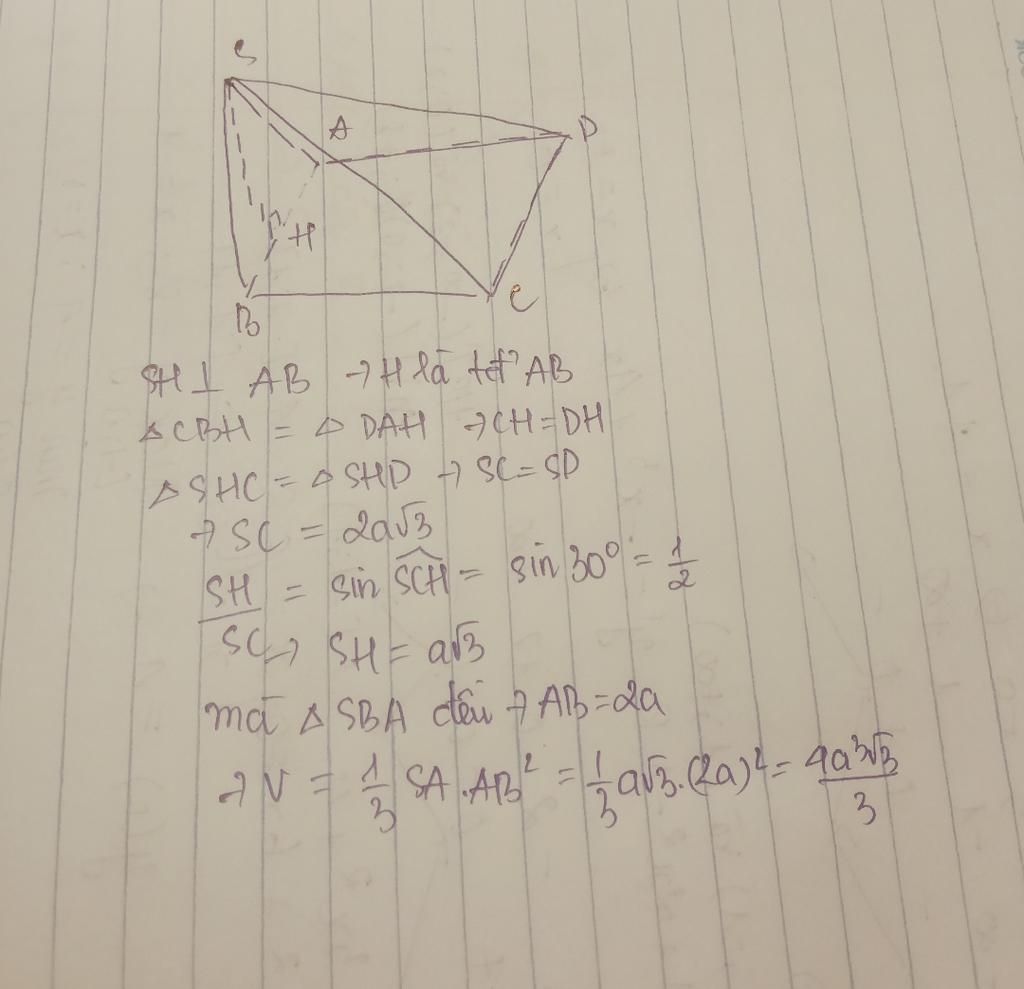 S
A
D
H
B
C
SH ⊥ AB → H là tđ AB
△ CBH = △ DAH → CH = DH
△ SHC = △ SHD → SC = SD
→ SC = 2a√3
SH/SC = sin SCH = sin 30° = 1/2
→ SH = a√3
mà △ SBA đều → AB = 2a
→ V = 1/3 SA . AB² = 1/3 a√3 . (2a)² = 4a³√3/3